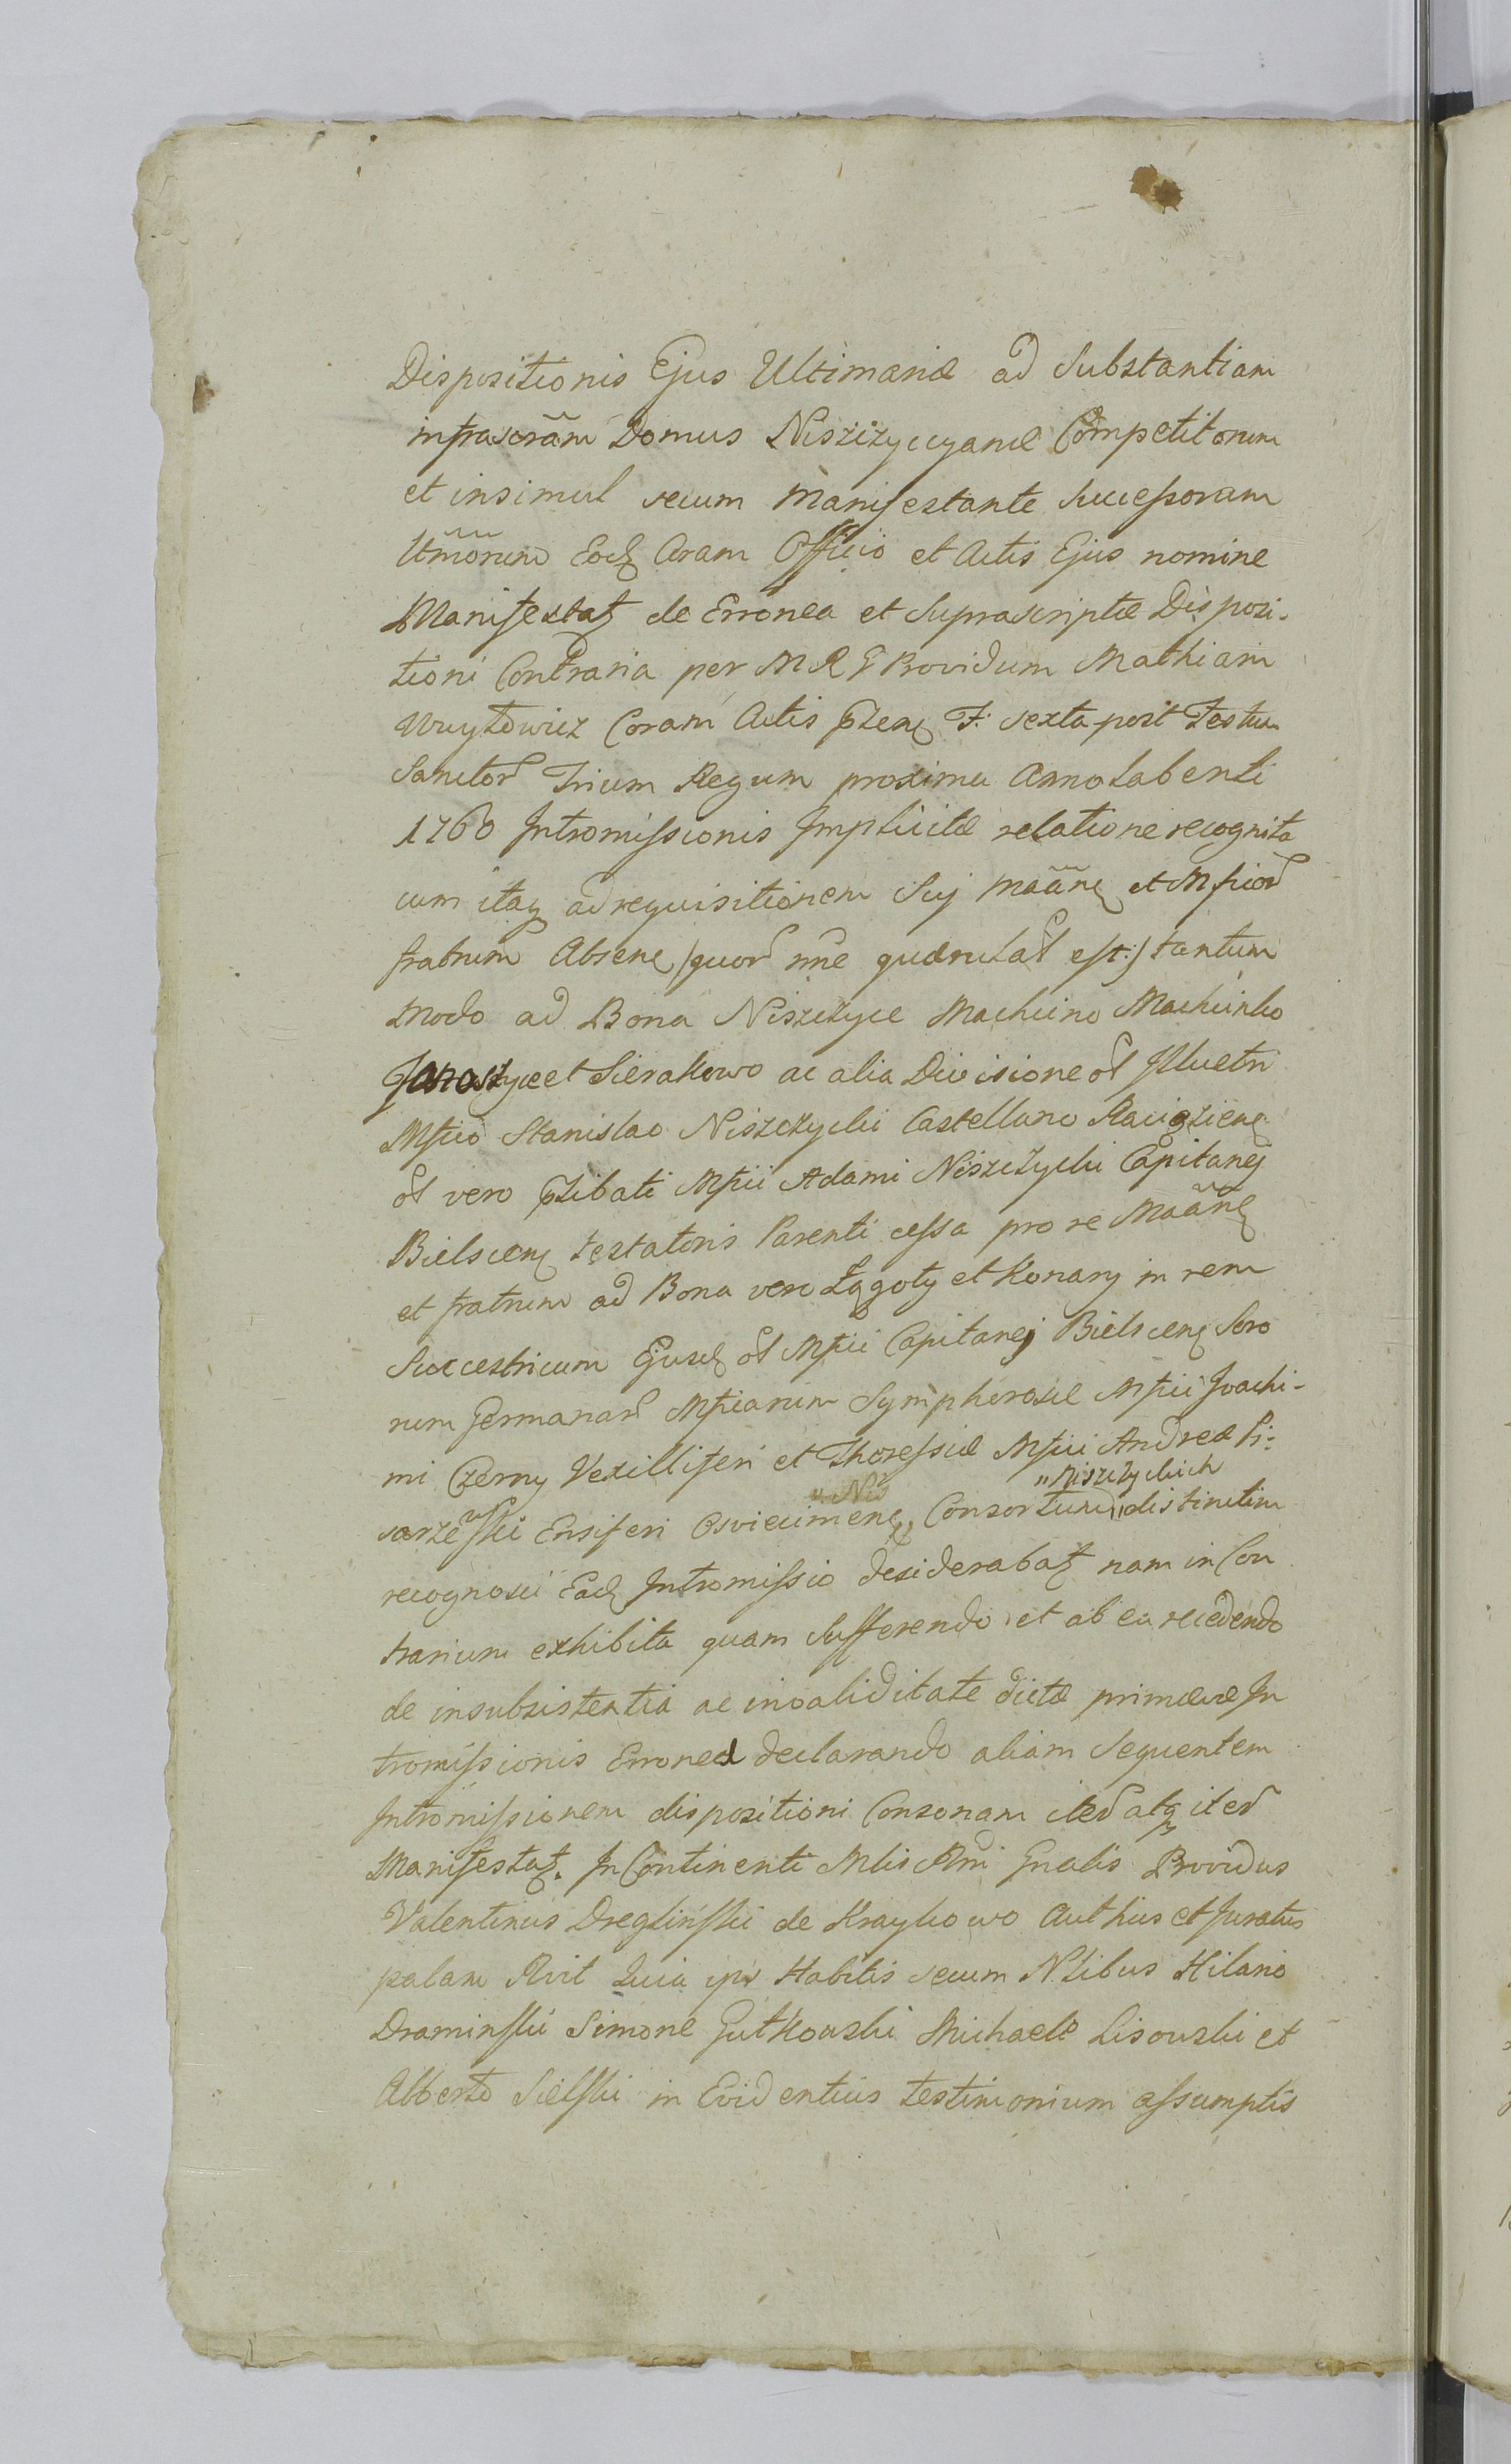 Dispositionis Ejus Ultimariæ ad Substantiam
infrascrãm Domus Niszczycyanæ Competitorum
et insimul secum Manifestante Successorum
Utmõrum Eodę Coram Officio et Actis Ejus nomine
Manifestatʒ de Erronea et Suprascriptæ Disposi-
tioni Contraria per M R G Providum Mathiam
Woytowicz Coram Actis F: sexta post Festum
Sanctor Trium Regum proxima Anno labenti
1760 Intromissionis Implicitæ relatione recognita
cum itaqʒ ad requisitionem Sui Maãnę et Mficor
fratrum Absenę /quor nne quærulat est:/ tantum
modo ad Bona Niszczyce Machcino Machcinko
et Sierakowo ac alia Divisione ol Illustri
Mfico Stanislao Niszczycki Castellano Raciązienę
ol vero Mfici Adami Niszczycki Capitanej
Bielscenę testatoris Parenti cessa pro re Maãnę
et fratrum ad Bona vero Łęgoty et Konary in rem
Successricum Ejusdę ol Mfici Capitanej Bielscenę Soro
rum Germanar Mficarum Sympherosæ Mfici Joachi-
mi Czerny Vexilliferi et Thoressiæ Mfici Andreæ Pi:
sarzewski Ensiferi Osviecimenę, Consortum „Niszczyckich distinctim
recognosci Eadę Intromissio desiderabatʒ nam in Con
trarium exhibita quam Sufferendo et ab ea recedendo
de insubsistentia ac invaliditate dictæ primævæ In
tromissionis Erroneæ declarando aliam Sequentem
Intromissionem dispositioni Consonam iter atqʒ iter
Manifestatʒ. In Continenti Mlis Rni Gnalis Providus
Valentinus Dregliński de Kraykowo Authus et Juratus
palam Rvit Quia ipse Habitis secum Nlibus Hilario
Dramiński Simone Gutkowski Michaele Lisowski et
Alberto Sielski in Evidentius testimonium assumptis